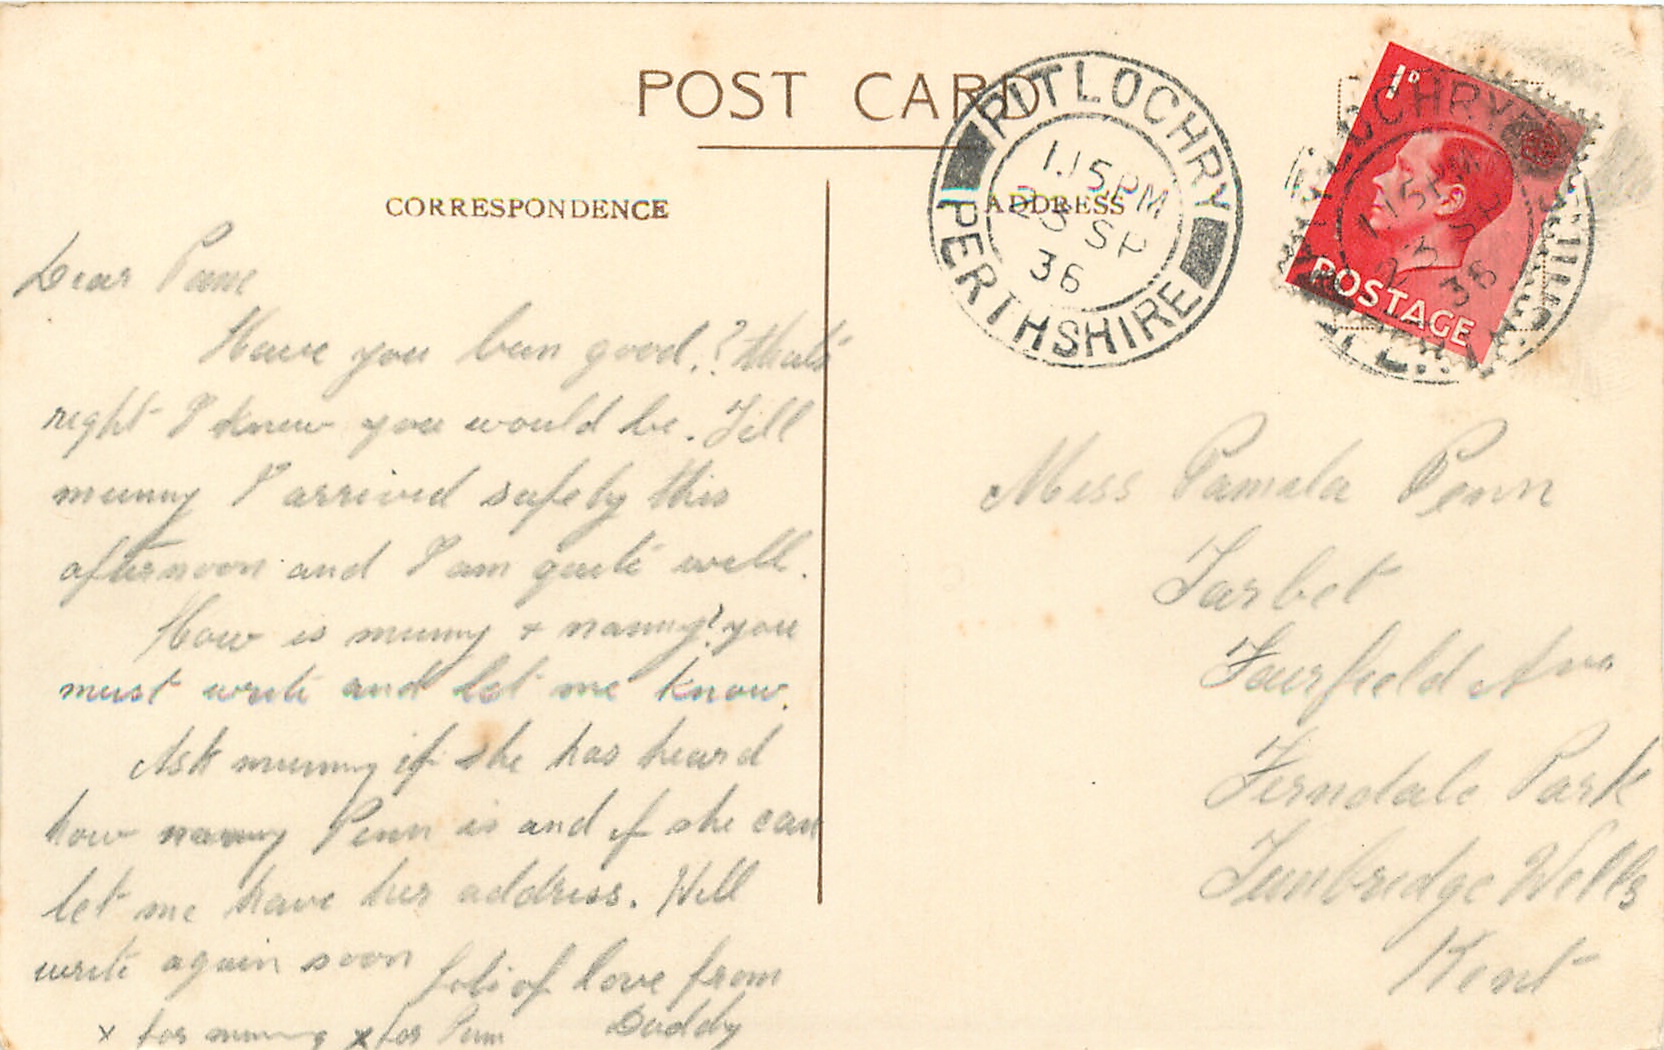 POST CARD
CORRESPONDENCE
ADDRESS
PITLOCHRY
1.15PM
23 SP
36
PERTHSHIRE
1D
POSTAGE
1.15PM
23 SP
36
Dear Pam
Have you been good.? thats
right I knew you would be. Tell
mummy I arrived safely this
afternoon and I am quite well.
How is mummy + nanny? you
must write and let me know.
Ask mummy if she has heard
how nanny Penn is and if she can
let me have her address. Will
write again soon
lots of love from
Daddy
x for mummy x for Pam
Miss Pamela Penn
Tarbet
Fairfield Ave
Ferndale Park
Tunbridge Wells
Kent